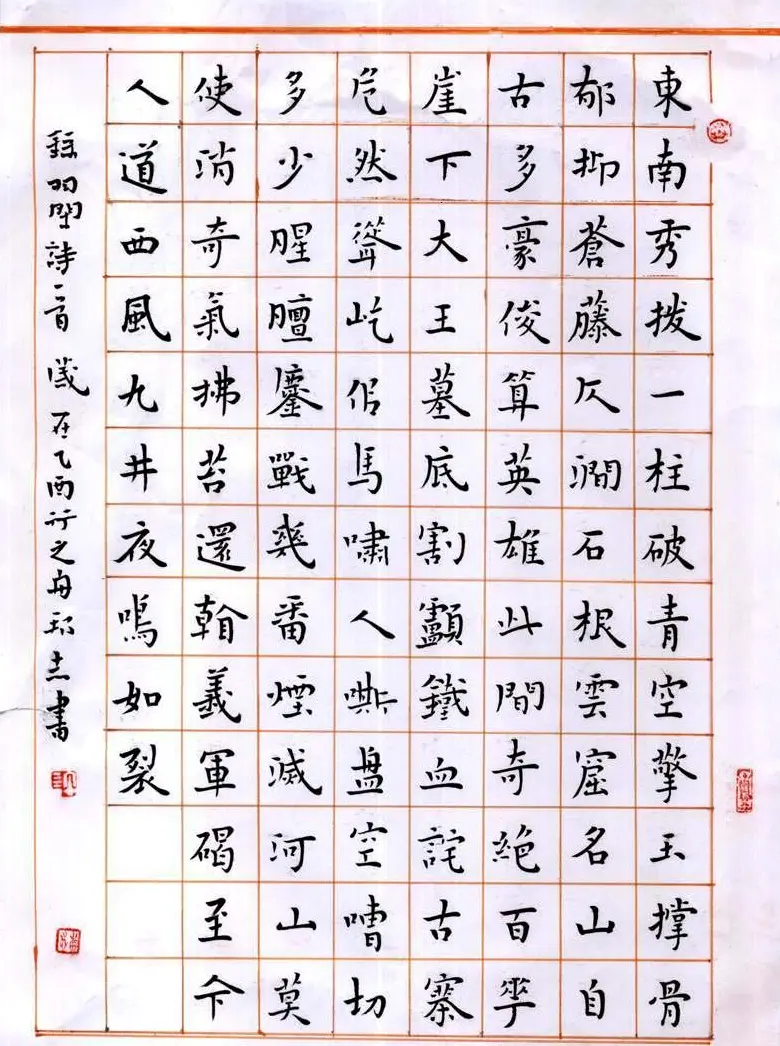 東南秀拨一柱破青空擎玉撑骨
郁抑蒼藤仄澗石根雲窟名山自
古多豪俊算英雄此間奇絶百
崖下大王墓底割顱鐵血詫古寨
危然聳屹侶馬嘯人嘶盘空嘈切
多少腥膻鏖戰幾番煙滅河山莫
使消奇氣拂苔還翰義軍碣至今
人道西風九井夜鳴如裂
詩一首 歲在乙酉 之 書